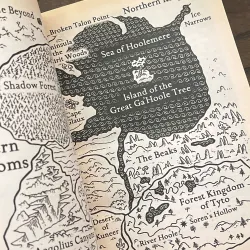 Beyond
Broken Talon Point
Northern
Ice
Narrows
the Woods
Sea of Hoolemere
Shadow Forest
Cape
Glaux
Island of the
Great Ga'Hoole Tree
The Beaks
Forest Kingdom
of Tyto
Soren's Hollow
Desert
of
Kuneer
River Hoole
Canyons